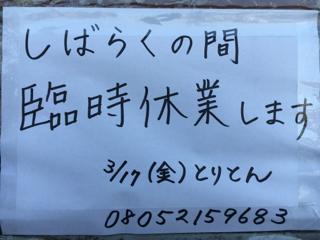 しばらくの間
臨時休業します
3/17(金)とりとん
08052159683